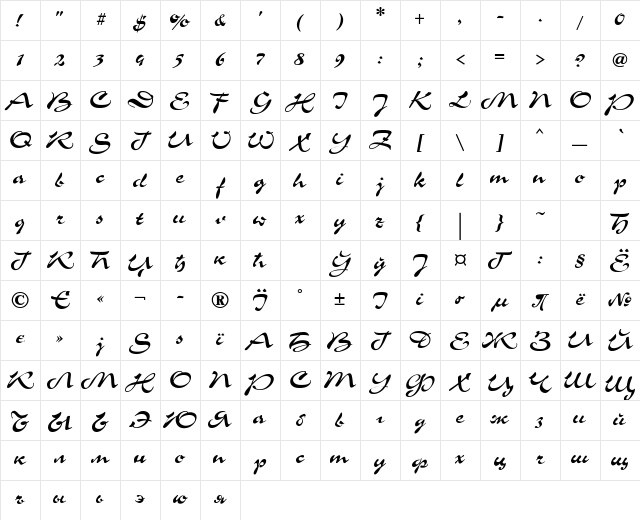 ! " # $ % & ' ( ) * + , - . / 0
1 2 3 4 5 6 7 8 9 : ; < = > ? @
A B C D E F G H I J K L M N O P
Q R S T U V W X Y Z [ \ ] ^ _ `
a b c d e f g h i j k l m n o p
q r s t u v w x y z { | } ~ Ђ
Г К Ћ Џ ђ к ћ Ў ў Ј ¤ Г : § Ё
© Є « ¬ - ® Ї ° ± І і µ ¶ ё №
є » ј Ѕ ѕ ї А Б В Г Д Е Ж З И Й
К Л М Н О П Р С Т У Ф Х Ц Ч Ш Щ
Ъ Ы Ь Э Ю Я а б в г д е ж з и й
к л м н о п р с т у ф х ц ч ш щ
ъ ы ь э ю я